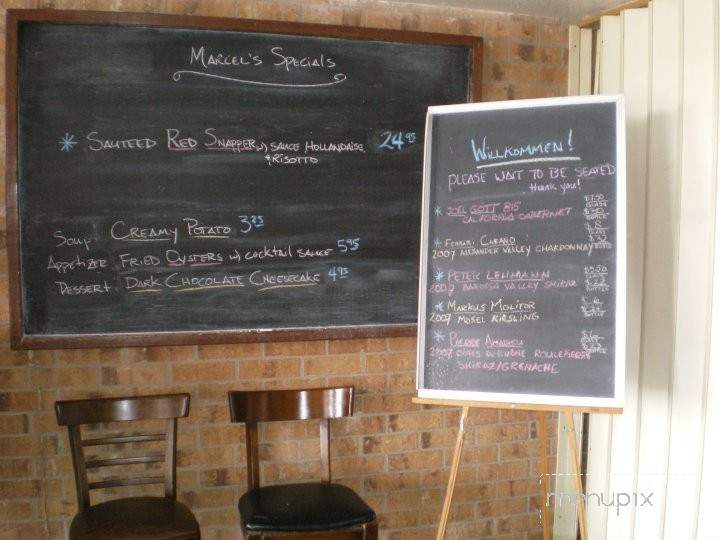 Marcel's Specials
* Sauteed Red Snapper w/ Sauce Hollandaise 24.95
& Risotto
Soup Creamy Potato 3.25
Appetizer Fried Oysters w/ cocktail sauce 5.95
Dessert Dark Chocolate Cheesecake 4.95
Willkommen!
Please wait to be seated
Thank you!
* Joel Gott 815
California Cabernet
* Ferrari Carano
2007 Alexander Valley Chardonnay
* Peter Lehmann
2007 Barossa Valley Shiraz
* Markus Molitor
2007 Mosel Riesling
* Pierre Amadieu
2007
Shiraz/Grenache
menupix